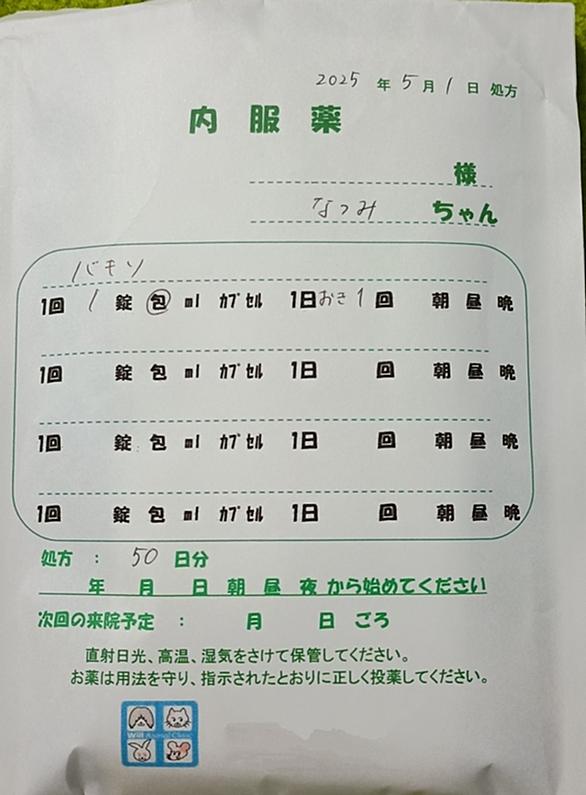 2025 年 5 月 1 日 処方
内 服 薬
様
なつみ ちゃん
バキソ
1回 1 錠 包 ml ｶﾌﾟｾﾙ 1日おき 1 回 朝 昼 晩
1回 錠 包 ml ｶﾌﾟｾﾙ 1日 回 朝 昼 晩
1回 錠 包 ml ｶﾌﾟｾﾙ 1日 回 朝 昼 晩
1回 錠 包 ml ｶﾌﾟｾﾙ 1日 回 朝 昼 晩
処方 : 50 日分
年 月 日 朝 昼 夜 から始めてください
次回の来院予定 : 月 日 ごろ
直射日光、高温、湿気をさけて保管してください。
お薬は用法を守り、指示されたとおりに正しく投薬してください。
Will Animal Clinic